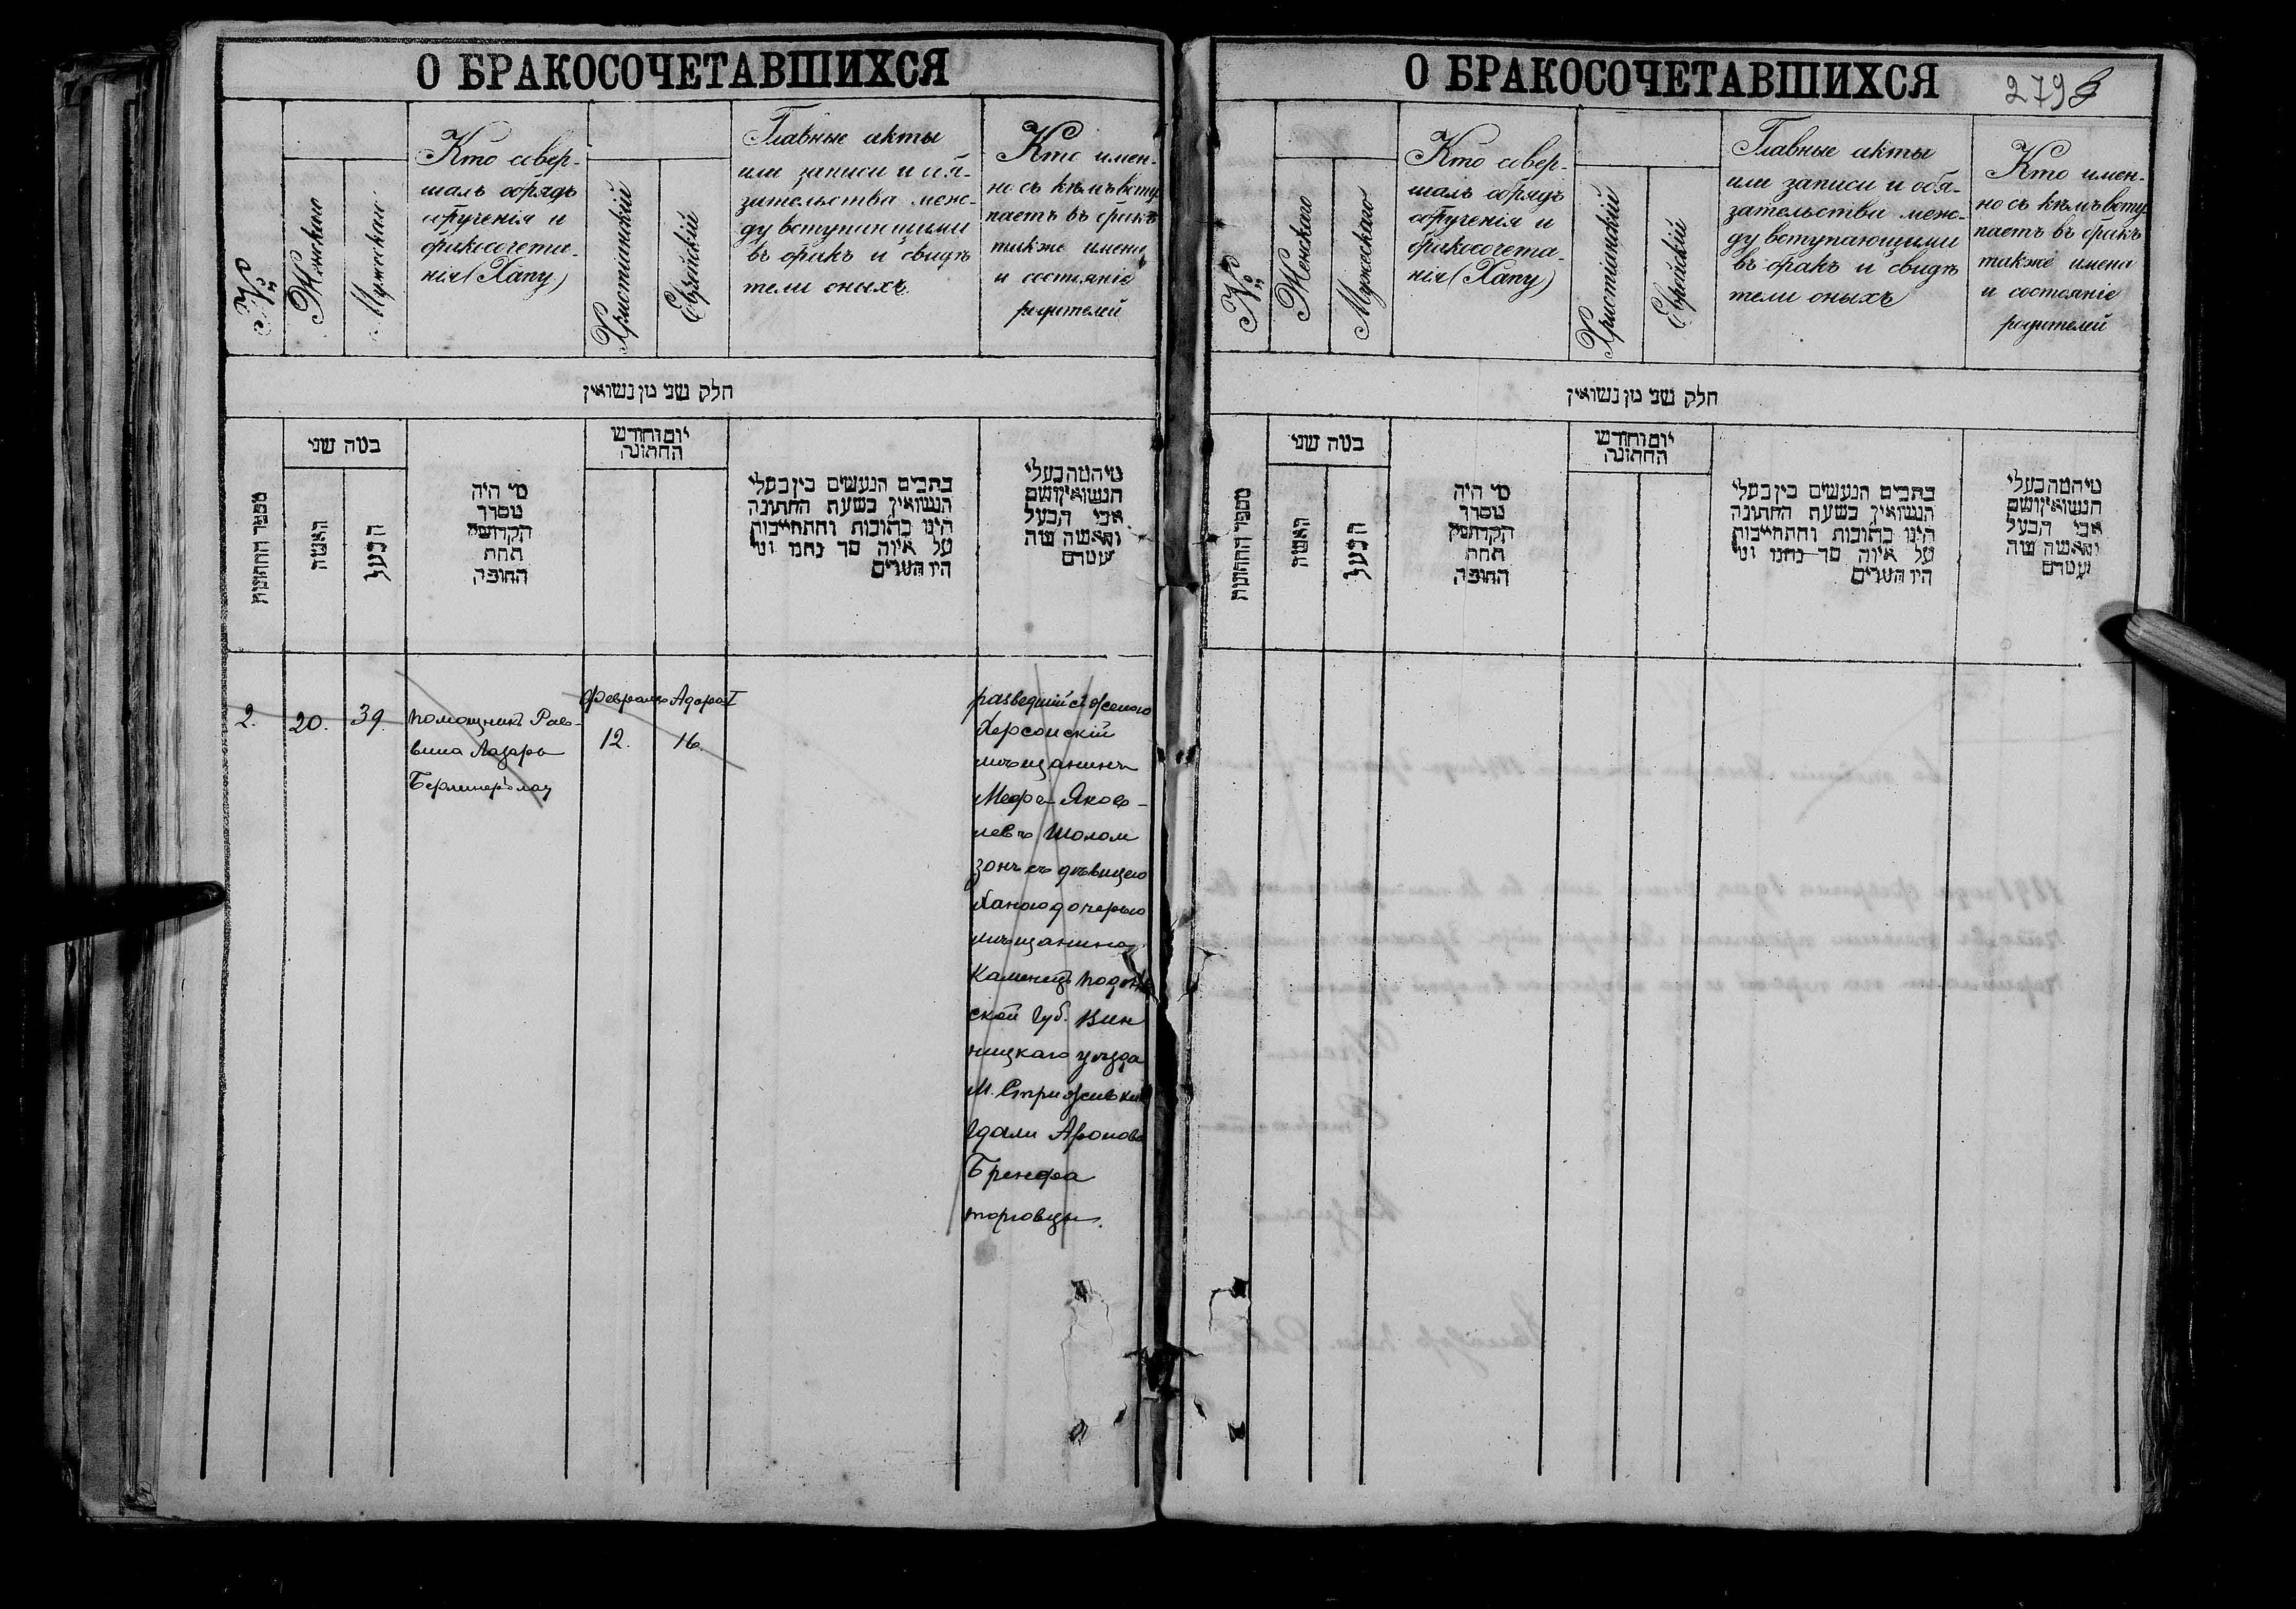 О БРАКОСОЧЕТАВШИХСЯ
№
Женскаго
Мужескаго
Кто совер-
шалъ обрядъ
обрученія и
бракосочета-
нія (Хапу)
Христіанскій
Еврейскій
Главные акты
или записи и обя-
зательства меж-
ду вступающими
въ бракъ и свидѣ
тели оныхъ
Кто имен-
но съ кѣмъ всту
паетъ въ бракъ
также имена
и состояніе
родителей
חלק שני מן נשואין
מספר החתונות
כמה שני
האשה
הבעל
מי היה
מסדר
הקדושין
תחת
החופה
יום וחודש
החתונה
כתבים הנעשים בין בעלי
הנשואין בשעת החתונה
היינו כתובות והתחייבות
על איזה סך נתנו ומי
היו העדים
מי המה בעלי
הנשואין ושם
אבי הבעל
והאשה ומה
מעמדם
2.
20.
39.
помощникъ Рав-
вина Лазарь
Берлинерблау
Февраля
12.
Адара I
16.
разведшійся съ женою
Херсонскій
мѣщанинъ
Яков-
левъ Шолом
зонъ съ дѣвицею
Ханою дочерью
мѣщанина
Каменецъ Подоль
ской губ. Вин
ницкаго уѣзда
м. Стрижевки
Гдали Аронова
торговцы.
О БРАКОСОЧЕТАВШИХСЯ
279
№
Женскаго
Мужескаго
Кто совер-
шалъ обрядъ
обрученія и
бракосочета-
нія (Хапу)
Христіанскій
Еврейскій
Главные акты
или записи и обя-
зательства меж-
ду вступающими
въ бракъ и свидѣ
тели оныхъ
Кто имен-
но съ кѣмъ всту
паетъ въ бракъ
также имена
и состояніе
родителей
חלק שני מן נשואין
מספר החתונות
כמה שני
האשה
הבעל
מי היה
מסדר
הקדושין
תחת
החופה
יום וחודש
החתונה
כתבים הנעשים בין בעלי
הנשואין בשעת החתונה
היינו כתובות והתחייבות
על איזה סך נתנו ומי
היו העדים
מי המה בעלי
הנשואין ושם
אבי הבעל
והאשה ומה
מעמדם